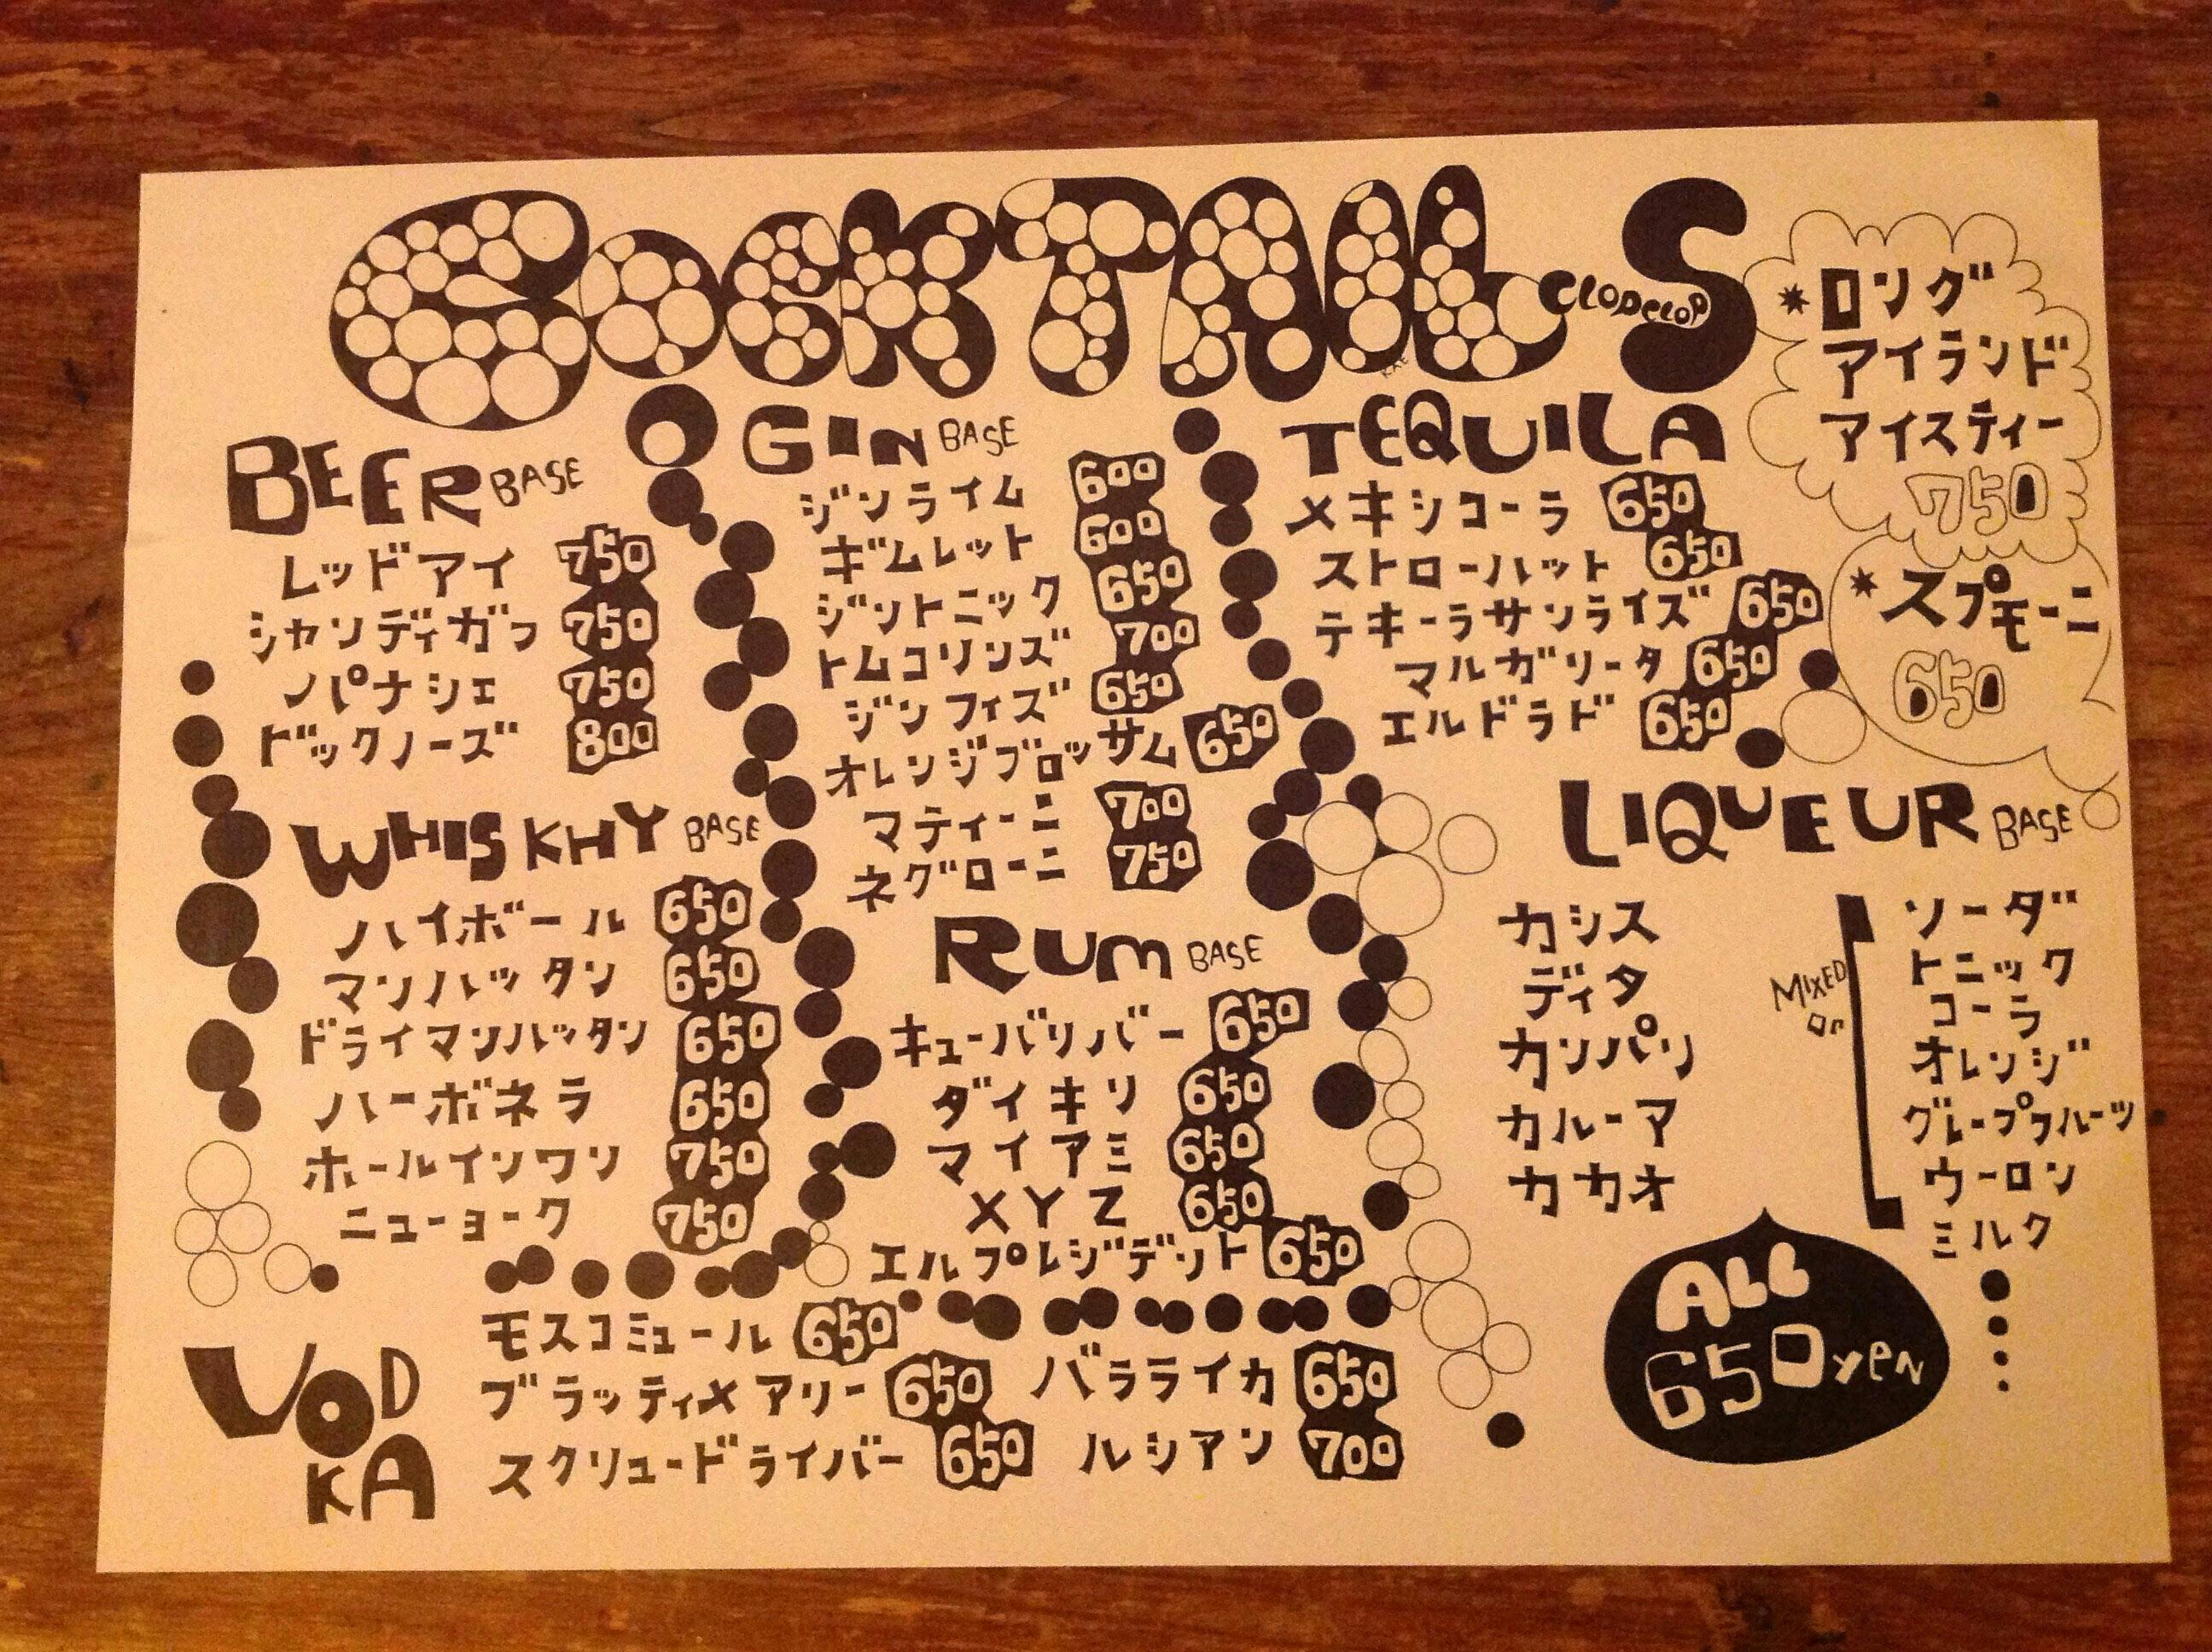 COCKTAILS
CLOPCLOP
BEER BASE
レッドアイ 750
シャンディガフ 750
パナシェ 750
ドッグノーズ 800
WHISKHY BASE
ハイボール 650
マンハッタン 650
ドライマンハッタン 650
ハーボネラ 650
ホールインワン 750
ニューヨーク 750
GIN BASE
ジンライム 600
ギムレット 600
ジントニック 650
トムコリンズ 700
ジンフィズ 650
オレンジブロッサム 650
マティーニ 700
ネグローニ 750
RUM BASE
キューバリバー 650
ダイキリ 650
マイアミ 650
XYZ 650
エルプレジデント 650
TEQUILA
メキシコーラ 650
ストローハット 650
テキーラサンライズ 650
マルガリータ 650
エルドラド 650
*ロング
アイランド
アイスティー
750
*スプモーニ
650
LIQUEUR BASE
カシス
ディタ
カンパリ
カルーア
カカオ
MIXED
or
ソーダ
トニック
コーラ
オレンジ
グレープフルーツ
ウーロン
ミルク
ALL
650yen
VODKA
モスコミュール 650
ブラッディメアリー 650
スクリュードライバー 650
バラライカ 650
ルシアン 700